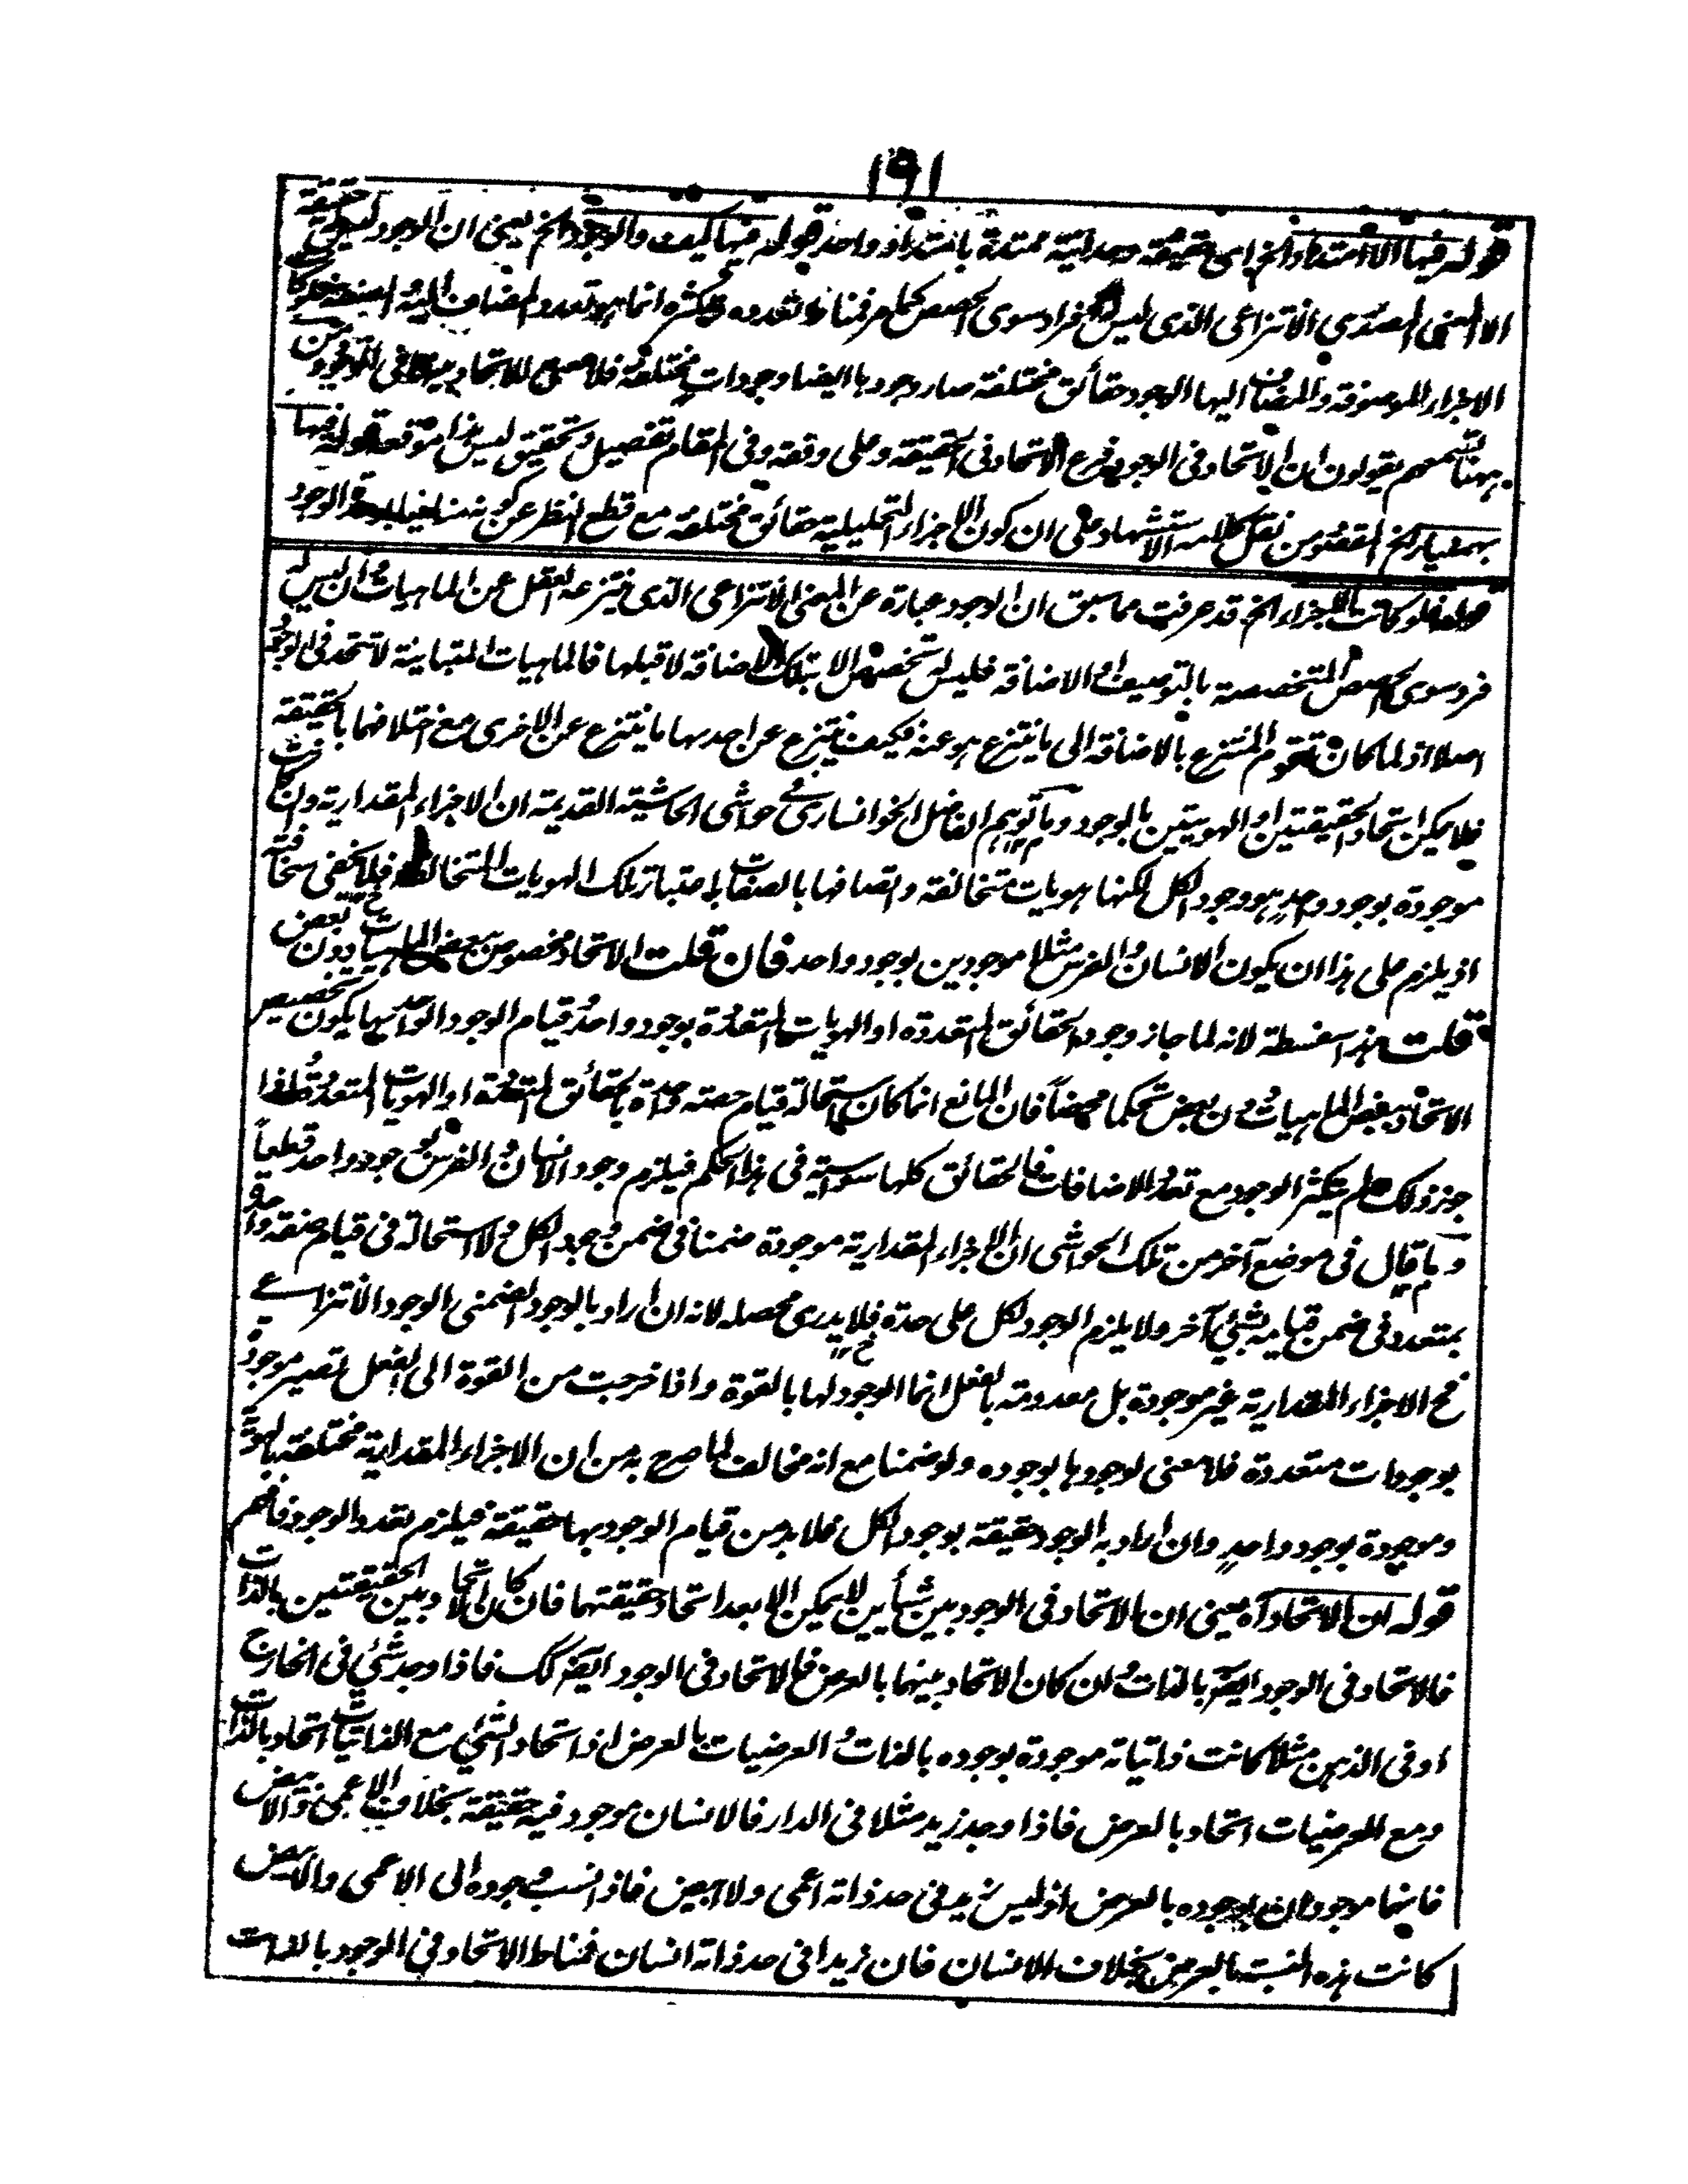 ١٩١
قوله فيها الا امتداد الخ اى حقيقة وحدانية ممتدة بامتداد واحد قوله منها كيف والوجود الخ يعنى ان الوجود ليس حقيقة
الا المعنى المصدرى الانتزاعى الذى ليس له افراد سوى الحصص كما مر فمناط تعدده وتكثره انما هو تعدد المضاف اليه
الاجزاء الموصوفة والمضاف اليها الوجود حقائق مختلفة صار وجودها ايضا وجودات مختلفة فلا معنى للاتحاد بينها فى الوجود
ههنا تسمعهم يقولون ان الاتحاد فى الوجود فرع الاتحاد فى الحقيقة وعلى وفقه وفى المقام تفصيل وتحقيق ليس هذا موقعه قوله فيها
بهمنيار الخ المقصود من نقل كلامه الاستشهاد على ان كون الاجزاء التحليلية حقائق مختلفة مع قطع النظر عن كونه منافيا لوحدة الوجود
قوله فلو كانت الاجزاء الخ قد عرفت مما سبق ان الوجود عبارة عن المعنى الانتزاعى الذى ينتزعه العقل عن الماهيات وان ليس له
فرد سوى الحصص المتخصصة بالتوصيف او الاضافة فليس له تخصص الا بتلك الاضافة لا قبلها فالماهيات المتباينة لا تتحد فى الوجود
اصلا اذ لما كان تقوم المنتزع بالاضافة الى ما ينتزع هو عنه فكيف ينتزع عن احدهما ما ينتزع عن الاخرى مع اختلافهما بالحقيقة
فلا يمكن اتحاد الحقيقتين او الهويتين بالوجود وما توهم الفاضل الخوانسارى فى حواشى الحاشية القديمة ان الاجزاء المقدارية وان كانت
موجودة بوجود واحد هو وجود الكل لكنها هويات متخالفة واتصافها بالصفات باعتبار تلك الهويات المتخالفة فلا يخفى سخافته
اذ يلزم على هذا ان يكون الانسان والفرس مثلا موجودين بوجود واحد فان قلت الاتحاد مخصوص ببعض الماهيات دون بعض
قلت هذه سفسطة لانه لما جاز وجود الحقائق المتعددة او الهويات المتعددة بوجود واحد وقيام الوجود الواحد بها يكون تخصيص
الاتحاد ببعض الماهيات دون بعض تحكما محضا فان المانع انما كان استحالة قيام حصة واحدة بالحقائق المتعددة او الهويات المتعددة فاذا
جوز ذلك ولم يتكثر الوجود مع تعدد الاضافات فالحقائق كلها سواسية فى هذا الحكم فيلزم وجود الانسان والفرس بوجود واحد قطعاً
وما قال فى موضع آخر من تلك الحواشى ان الاجزاء المقدارية موجودة ضمنا فى ضمن وجود الكل ولا استحالة فى قيام صفة واحدة
بمتعدد فى ضمن قيامه بشئ آخر ولا يلزم الوجود لكل على حدة فلا يدرى محصله لانه ان اراد بالوجود الضمنى الوجود الانتزاعى
فح الاجزاء المقدارية غير موجودة بل معدومة بالفعل انما الوجود لها بالقوة واذا خرجت من القوة الى الفعل تصير موجودة
بوجودات متعددة فلا معنى لوجودها بوجوده ولو ضمنا مع انه مخالف لما صرح به من ان الاجزاء المقدارية مختلفة بالهوية
وموجودة بوجود واحد وان اراد به الوجود حقيقة بوجود الكل فلا بد من قيام الوجود بها حقيقة فيلزم تعدد الوجود فافهم
قوله ان الاتحاد آه يعنى ان الاتحاد فى الوجود بين شيئين لا يمكن الا بعد اتحاد حقيقتهما فان كان الاتحاد بين الحقيقتين بالذات
فالاتحاد فى الوجود ايضا بالذات وان كان الاتحاد بينهما بالعرض فالاتحاد فى الوجود ايضا كك فاذا وجد شئ فى الخارج
او فى الذهن مثلا كانت ذاتياته موجودة بوجوده بالذات والعرضيات بالعرض اذ اتحاد الشئ مع الذاتيات اتحاد بالذات
ومع العرضيات اتحاد بالعرض فاذا وجد زيد مثلا فى الدار فالانسان موجود فيه حقيقة بخلاف الاعمى والابيض
فانهما موجودان بوجوده بالعرض اذ ليس زيد فى حد ذاته اعمى ولا ابيض فاذا نسب وجوده الى الاعمى والابيض
كانت هذه النسبة بالعرض بخلاف الانسان فان زيدا فى حد ذاته انسان فمناط الاتحاد فى الوجود بالذات